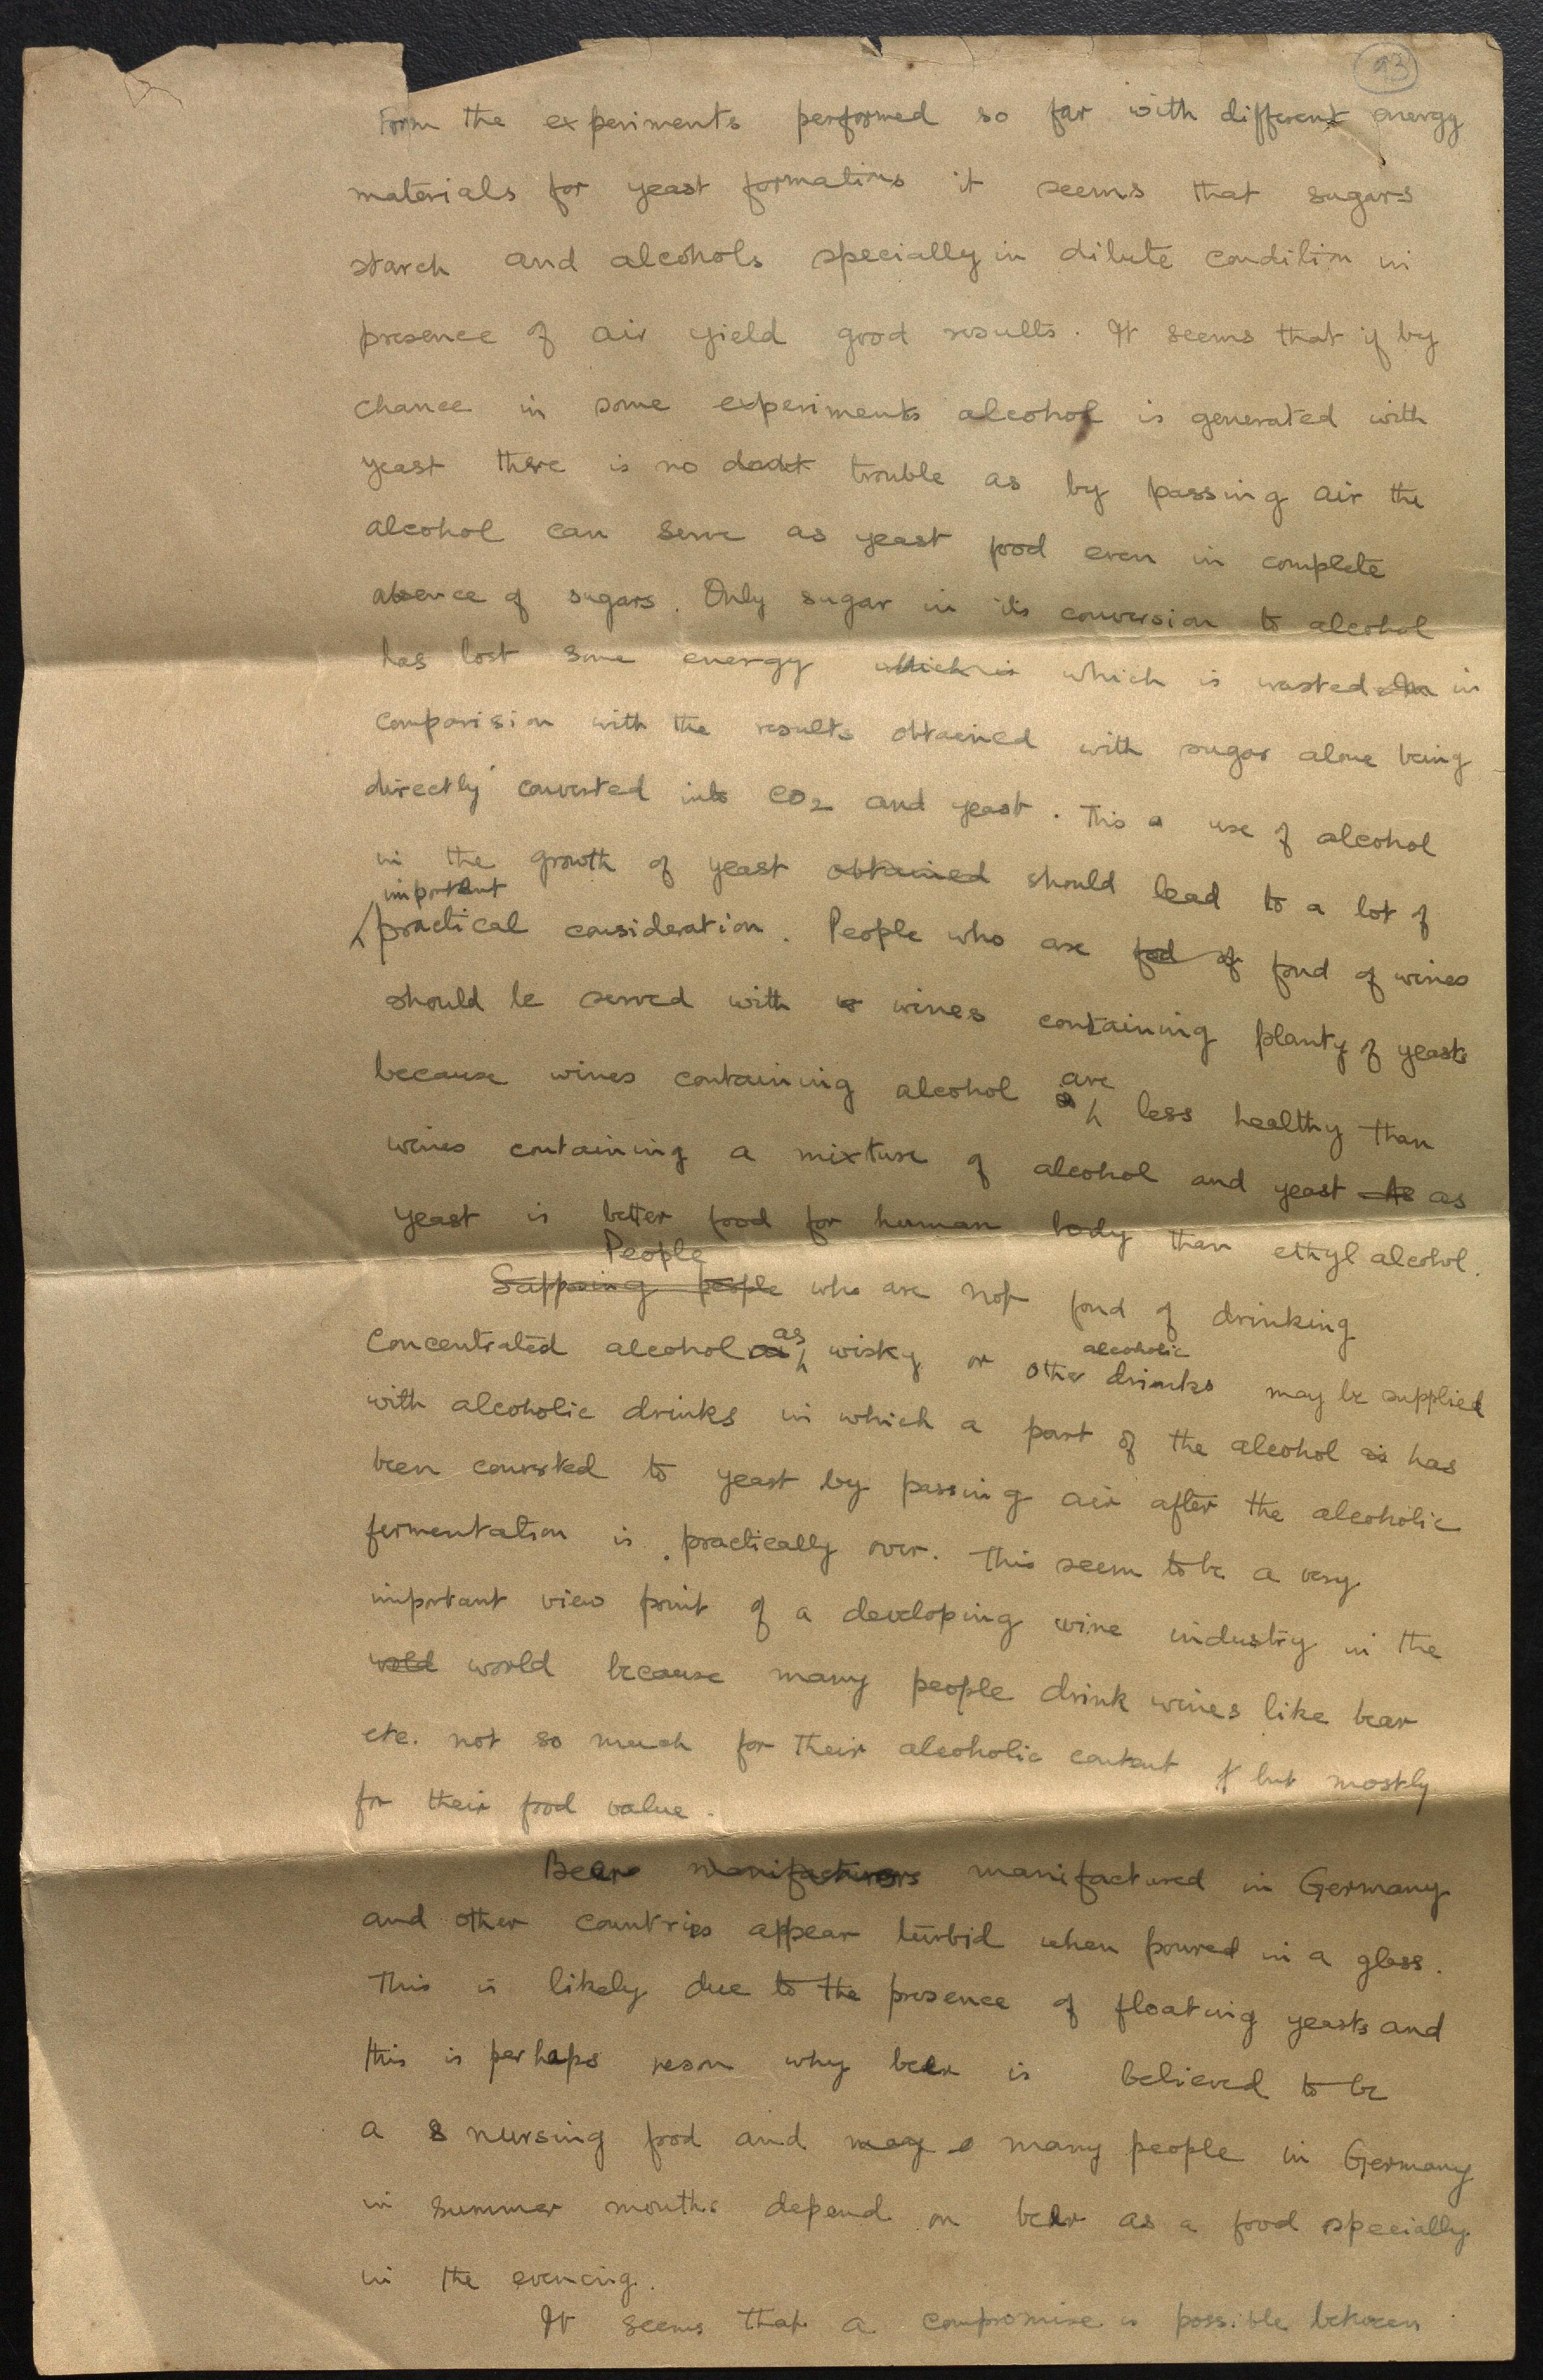 93
Form the experiments performed so far with different energy
materials for yeast formations it seems that sugars
starch and alcohols specially in dilute condition in
presence of air yield good results. It seems that if by
chance in some experiments alcohol is generated with
yeast there is no doubt trouble as by passing air the
alcohol can serve as yeast food even in complete
absence of sugars. Only sugar in its conversion to alcohol
has lost some energy which is which is wasted in
comparision with the results obtained with sugar alone being
directly converted into CO2 and yeast. This use of alcohol
in the growth of yeast obtained should lead to a lot of
important
practical consideration. People who are fod of fond of wines
should be served with wines containing planty of yeasts
because wines containing alcohol are less healthy than
wines containing a mixture of alcohol and yeast as
yeast is better food for human body than ethyl alcohol.
People
Supposing people who are not fond of drinking
concentrated alcohol as wisky or other alcoholic drinks may be supplied
with alcoholic drinks in which a part of the alcohol is has
been converted to yeast by passing air after the alcoholic
fermentation is practically over. This seem to be a very
important view point of a developing wine industry in the
wold world because many people drink wines like bear
etc. not so much for their alcoholic content but mostly
for their food value.
Bear manifacturers manifactured in Germany
and other countries appear turbid when poured in a glass.
This is likely due to the presence of floating yeasts and
this is perhaps reson why beer is believed to be
a nursing food and may many people in Germany
in summer months depend on beer as a food specially
in the evening.
It seems that a compromise is possible between